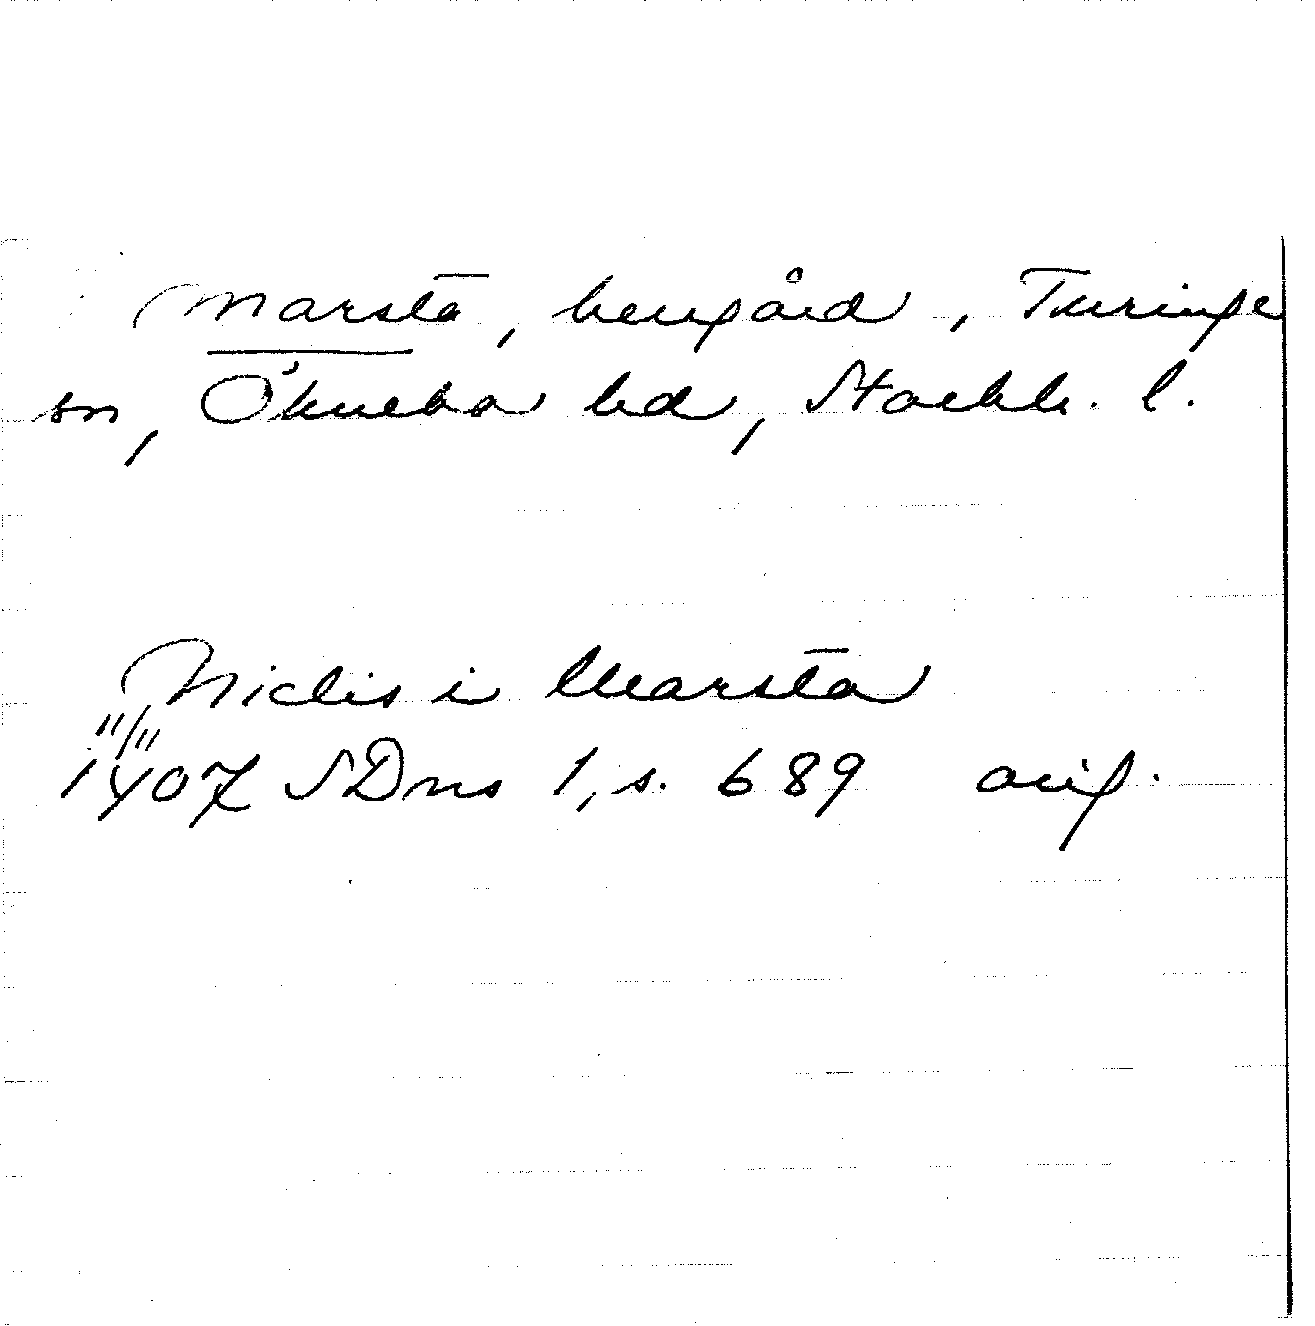 Marsta, herrgård, Turinge
sn, Öknebo hd, Stockh. l.
Niclis i Marsta
11/11
1407 SDns 1, s. 689 orig.